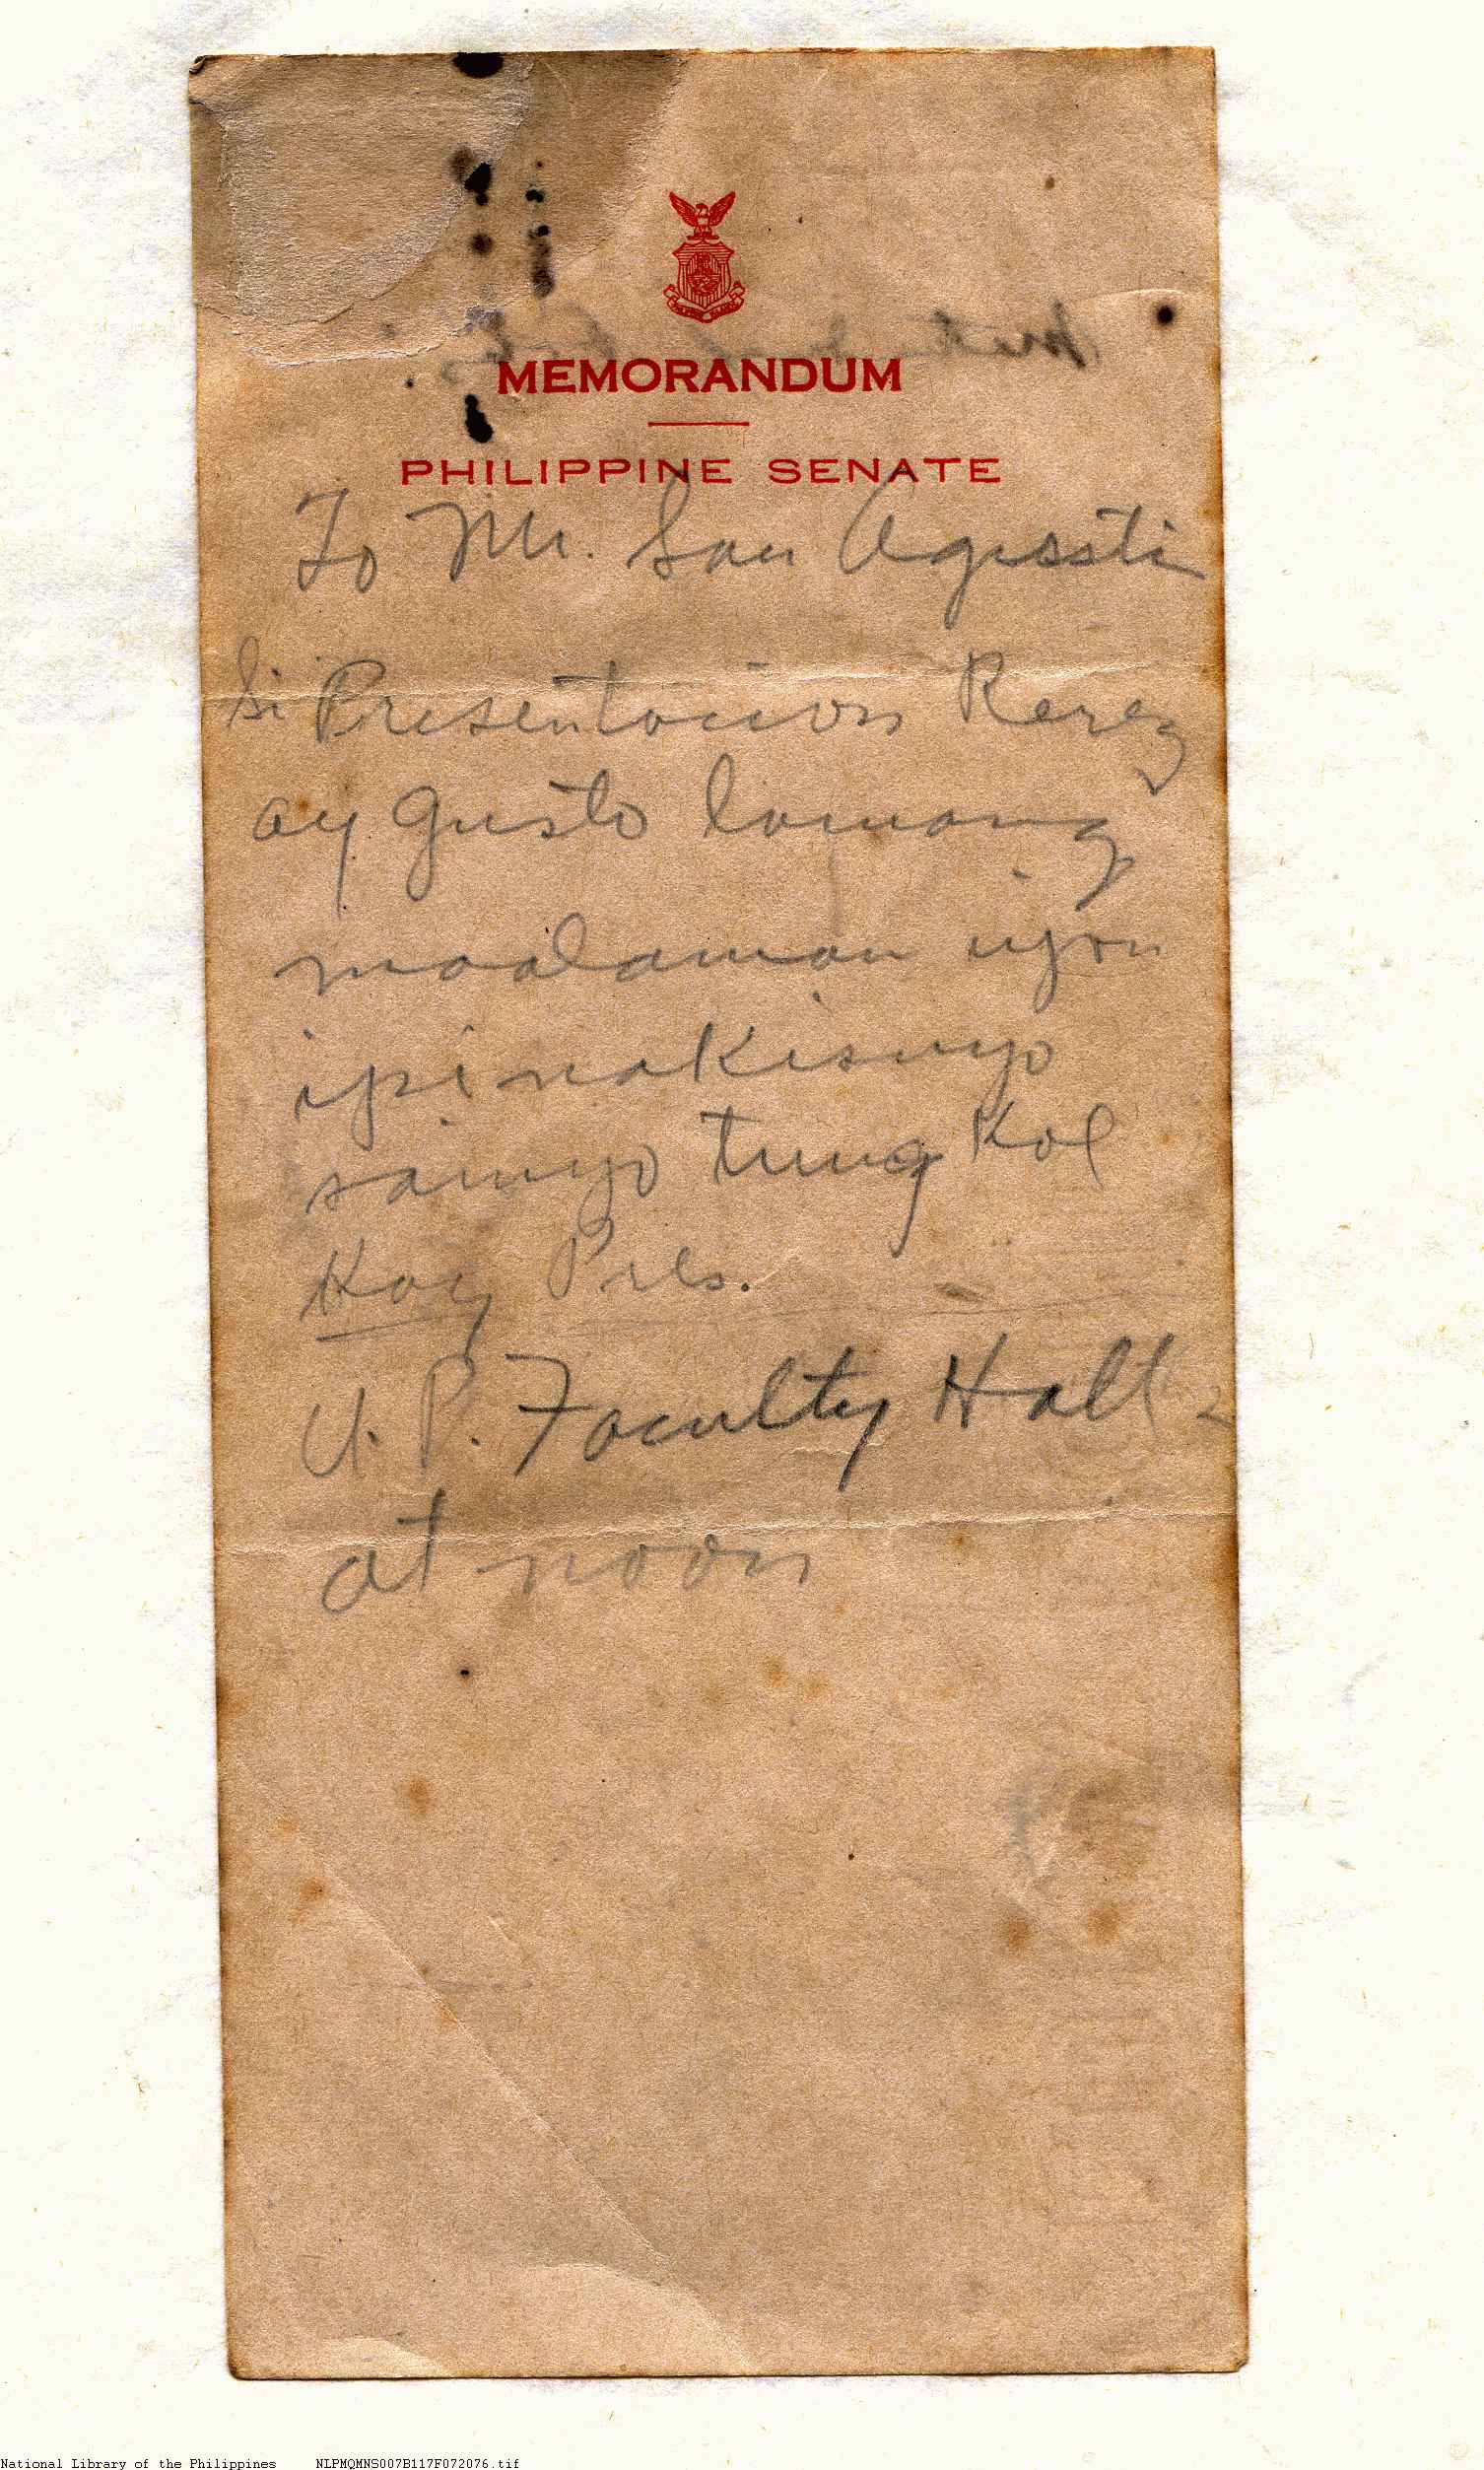 MEMORANDUM
PHILIPPINE SENATE
To Mr. San Agusti
Si Presentacion Perez
ay gusto lamang
maalaman iyon
ipinakisuyo
sainyo tung Kol
Kay Pres.
U. P. Faculty Hall
at noon
National Library of the Philippines NLPMQMNS007B117F072076.tif